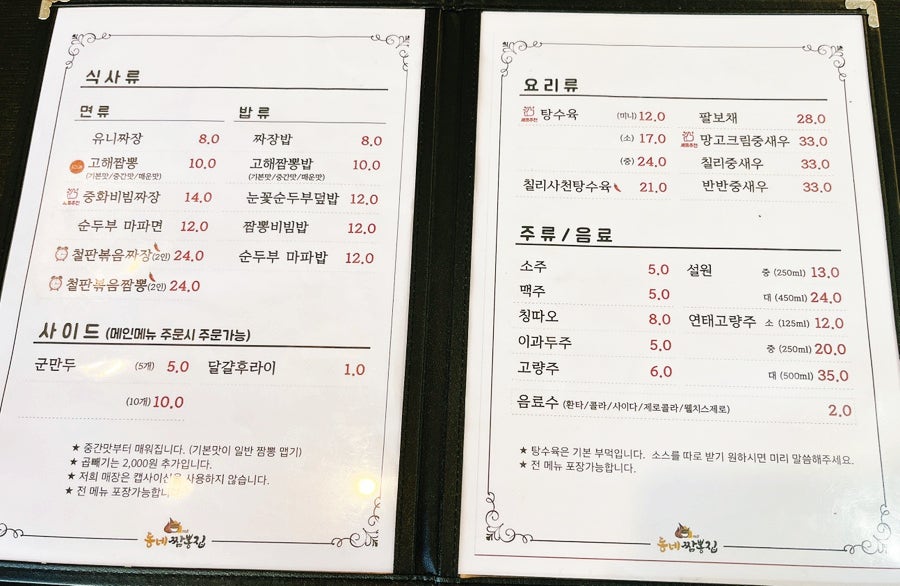 식사류
면류
유니짜장 8.0
고해짬뽕 10.0
(기본맛/중간맛/매운맛)
중화비빔짜장 14.0
순두부 마파면 12.0
철판볶음짜장(2인) 24.0
철판볶음짬뽕(2인) 24.0
밥류
짜장밥 8.0
고해짬뽕밥 10.0
(기본맛/중간맛/매운맛)
눈꽃순두부덮밥 12.0
짬뽕비빔밥 12.0
순두부 마파밥 12.0
사이드 (메인메뉴 주문시 주문가능)
군만두 (5개) 5.0 달걀후라이 1.0
(10개) 10.0
★ 중간맛부터 매워집니다. (기본맛이 일반 짬뽕 맵기)
★ 곱빼기는 2,000원 추가입니다.
★ 저희 매장은 캡사이신을 사용하지 않습니다.
★ 전 메뉴 포장가능합니
동네짬뽕집
요리류
탕수육 (미니) 12.0
(소) 17.0
(중) 24.0
칠리사천탕수육 21.0
팔보채 28.0
망고크림중새우 33.0
칠리중새우 33.0
반반중새우 33.0
주류/음료
소주 5.0
맥주 5.0
칭따오 8.0
이과두주 5.0
고량주 6.0
설원 중 (250ml) 13.0
대 (450ml) 24.0
연태고량주 소 (125ml) 12.0
중 (250ml) 20.0
대 (500ml) 35.0
음료수 (환타/콜라/사이다/제로콜라/웰치스제로) 2.0
★ 탕수육은 기본 부먹입니다. 소스를 따로 받기 원하시면 미리 말씀해주세요.
★ 전 메뉴 포장가능합니다.
동네짬뽕집